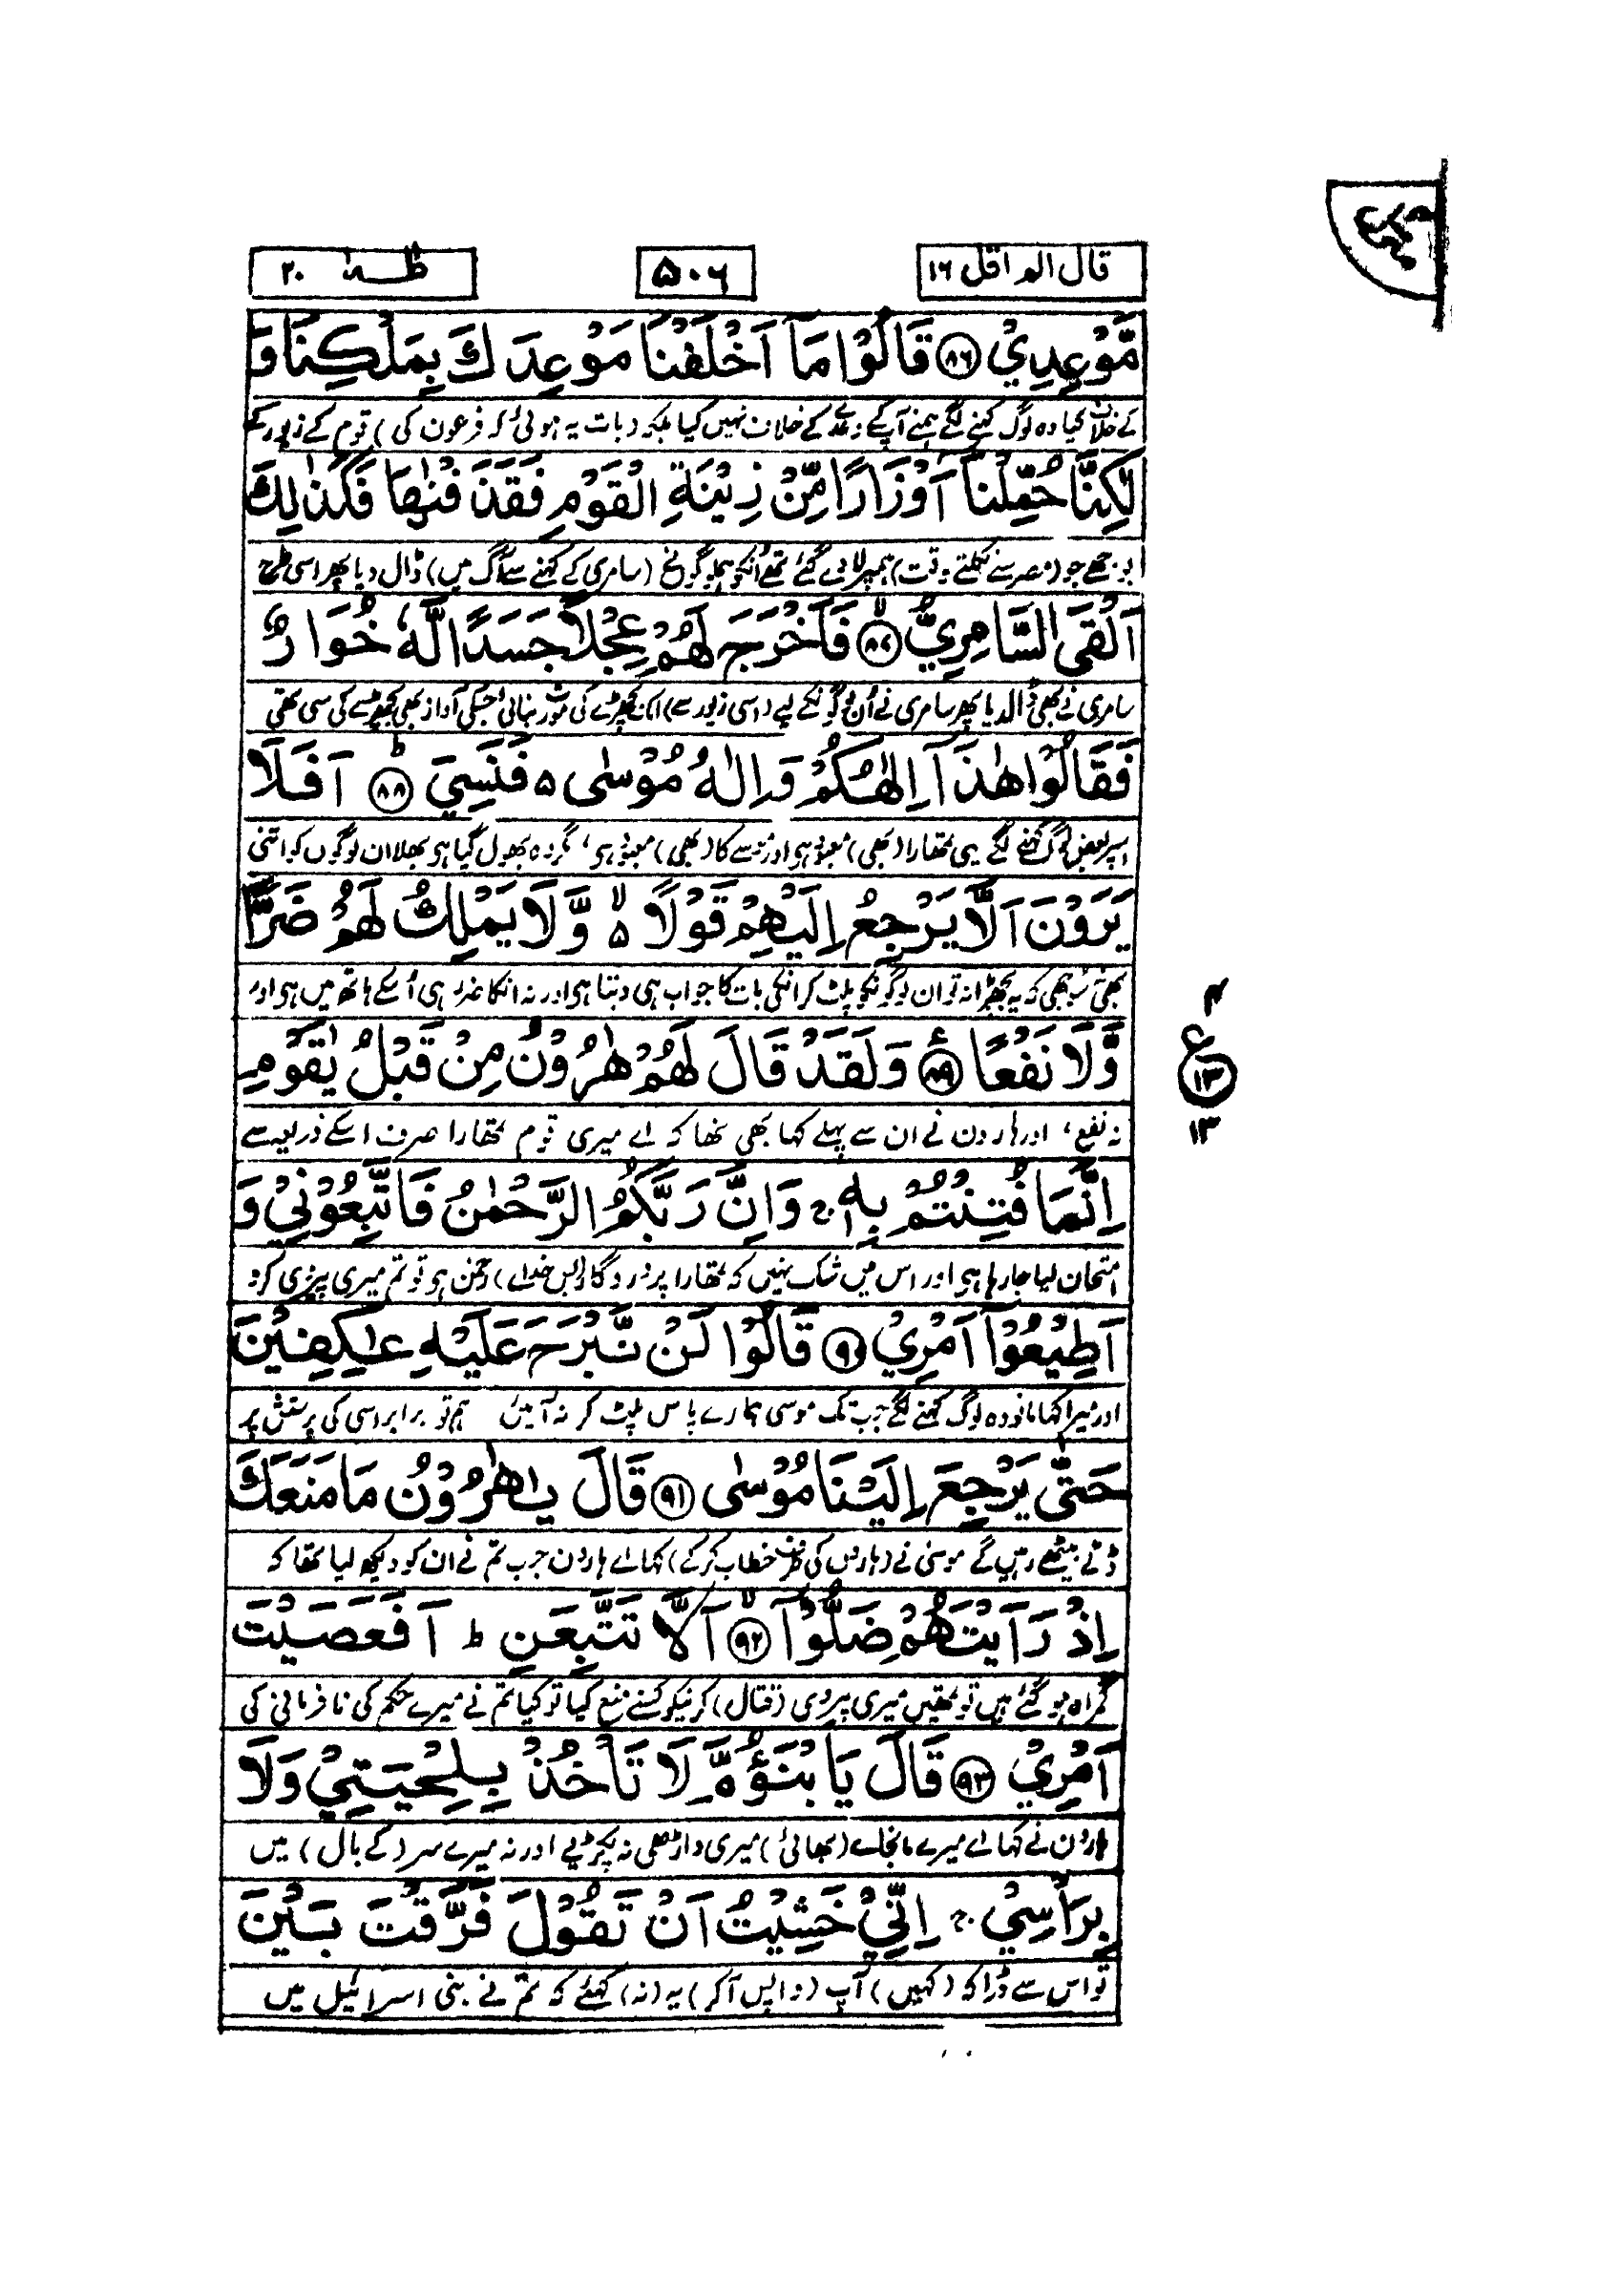 قال الم اقل ۱۶
۵۰۶
طٰہٰ ۲۰
مَّوْعِدِيْ ﴿۸۶﴾ قَالُوْا مَآ اَخْلَفْنَا مَوْعِدَكَ بِمَلْكِنَا وَ
کے خلاف کیا وہ لوگ کہنے لگے ہمنے آپکے وعدے کے خلاف نہیں کیا بلکہ (بات یہ ہوئی کہ فرعون کی) قوم کے زیور کے
لٰكِنَّا حُمِّلْنَآ اَوْزَارًا مِّنْ زِيْنَةِ الْقَوْمِ فَقَذَفْنٰهَا فَكَذٰلِكَ
بوجھے جو (مصر سے نکلتے وقت) ہمپر لادے گئے تھے انکو ہملوگونے (سامری کے کہنے سے آگ میں) ڈال دیا پھر اسی طرح
اَلْقَى السَّامِرِيُّ ﴿۸۷﴾ۙ فَاَخْرَجَ لَهُمْ عِجْلًا جَسَدًا لَّهٗ خُوَارٌ
سامری نے بھی ڈالدیا پھر سامری نے اُن لوگونکے لیے (اسی زیور سے) ایک بچھڑے کی مورت بنائی جسکی آواز بھی بچھڑے کی سی تھی
فَقَالُوْا هٰذَآ اِلٰهُكُمْ وَاِلٰهُ مُوْسٰى ۵ فَنَسِيَ ﴿۸۸﴾ؕ اَفَلَا
اسپر بعض لوگ کہنے لگے یہی تمھارا (بھی) معبود ہو اور موسے کا (بھی) معبود ہو، مگر وہ بھول گیا ہو بھلا ان لوگوں کو اتنی
يَرَوْنَ اَلَّا يَرْجِعُ اِلَيْهِمْ قَوْلًا ۵ۙ وَّلَا يَمْلِكُ لَهُمْ ضَرًّا
بھی نہ سوجھی کہ یہ بچھڑا نہ تو ان لوگونکو پلٹ کر انکی بات کا جواب ہی دیتا ہو اور نہ انکا ضرر ہی اُسکے ہاتھ میں ہو اور
وَّلَا نَفْعًا ﴿۸۹﴾ۧ وَلَقَدْ قَالَ لَهُمْ هٰرُوْنُ مِنْ قَبْلُ يٰقَوْمِ
نہ نفع، اور ہارون نے ان سے پہلے کہا بھی تھا کہ اے میری قوم تمھارا صرف اسکے ذریعہ سے
اِنَّمَا فُتِنْتُمْ بِهٖ ۚ وَاِنَّ رَبَّكُمُ الرَّحْمٰنُ فَاتَّبِعُوْنِيْ وَ
امتحان لیا جا رہا ہو اور اس میں شک نہیں کہ تمھارا پروردگار (بس خدائے) رحمٰن ہو تو تم میری پیروی کرو
اَطِيْعُوْٓا اَمْرِيْ ﴿۹۰﴾ قَالُوْا لَنْ نَّبْرَحَ عَلَيْهِ عٰكِفِيْنَ
اور میرا کہا مانو وہ لوگ کہنے لگے جب تک موسی ہمارے پاس پلٹ کر نہ آئیں ہم تو برابر اسی کی پرستش پر
حَتّٰى يَرْجِعَ اِلَيْنَا مُوْسٰى ﴿۹۱﴾ قَالَ يٰهٰرُوْنُ مَا مَنَعَكَ
ڈٹے بیٹھے رہیں گے موسیٰ نے (ہارون کی طرف خطاب کر کے) کہا اے ہارون جب تم نے ان کو دیکھ لیا تھا کہ
اِذْ رَاَيْتَهُمْ ضَلُّوْٓا ﴿۹۲﴾ۙ اَلَّا تَتَّبِعَنِ ؕ اَفَعَصَيْتَ
گمراہ ہو گئے ہیں تو تمھیں میری پیروی (قتال) کرنیکو کسنے منع کیا تو کیا تم نے میرے حکم کی نافرمانی کی
اَمْرِيْ ﴿۹۳﴾ قَالَ يَا بْنَؤُمَّ لَا تَاْخُذْ بِلِحْيَتِيْ وَلَا
ہارون نے کہا اے میرے مانجائے (بھائی) میری داڑھی نہ پکڑیے اور نہ میرے سر (کے بال) میں
بِرَاْسِيْ ۚ اِنِّيْ خَشِيْتُ اَنْ تَقُوْلَ فَرَّقْتَ بَيْنَ
تو اس سے ڈرا کہ (کہیں) آپ (واپس آ کر) یہ (نہ) کہئے کہ تم نے بنی اسرائیل میں
ع
۱۳
۱۳